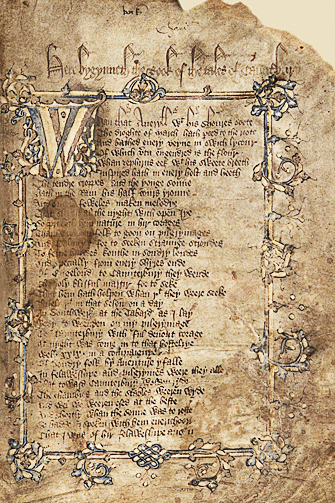 Here bygynneth the Book of the tales of Caunterbury
Whan that Aueryll wt his shoures
The droghte of March hath perced to the roote
And bathed euery veyne in swich lycour
Of which vertu engendred is the flour
Whan zephirus eek wt his sweete breeth
Inspired hath in euery holt and heeth
The tendre croppes and the yonge sonne
Hath in the Ram his half cours yronne
And foweles maken melodye
al the nyght with open Iye
priketh hem nature in hir corages
folk to goon on pilgrymages
And for to seeken straunge strondes
To ferne kouthe in sondry londes
And specially from euery shyres ende
Of Engelond to Caunterbury they wende
The holy blisful martir for to seke
That hem hath holpen whan þt they weere seeke
in that seson on a day
In Southwerk at the Tabard as I lay
Redy to weenden on my pilgrymage
To Caunterbury with ful deuout corage
At nyght was come in to that hostelrye
Wel .xxix. in a compaignye
Of sondry folk by auenture yfalle
In felaweshipe and pilgrymes weere they alle
That toward Caunterbury wolden ryde
The chambres and the stables weeren wyde
And wel we weeren esed at the beste
And shortly whan the sonne was to reste
So hadde I spoken with hem euerichoon
That I was of hir felaweshipe anoon